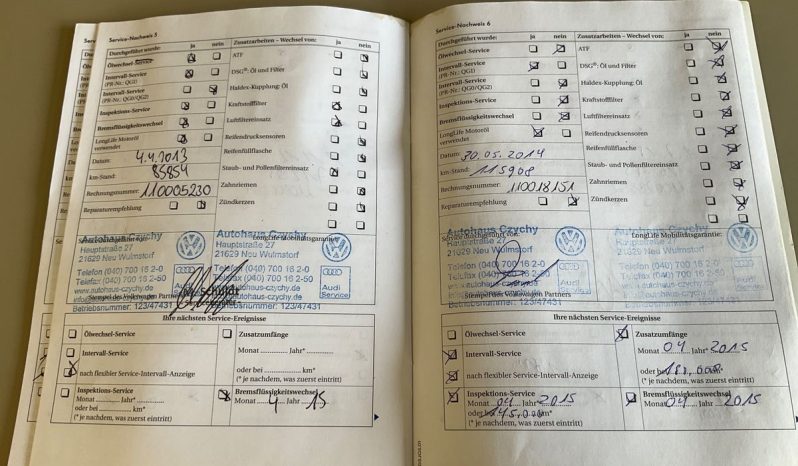 Service-Nachweis 5
Durchgeführt wurde: ja nein
Ölwechsel-Service
Intervall-Service
(PR-Nr.: QG1)
Intervall-Service
(PR-Nr.: QG0/QG2)
Inspektions-Service
Bremsflüssigkeitswechsel
LongLife Motoröl
verwendet
Datum: 4.4.2013
km-Stand: 85854
Rechnungsnummer: 110005230
Reparaturempfehlung
Zusatzarbeiten – Wechsel von: ja nein
ATF
DSG®: Öl und Filter
Haldex-Kupplung: Öl
Kraftstofffilter
Luftfiltereinsatz
Reifendrucksensoren
Reifenfüllflasche
Staub- und Pollenfiltereinsatz
Zahnriemen
Zündkerzen
LongLife Mobilitätsgarantie:
Autohaus Czychy
Hauptstraße 27
21629 Neu Wulmstorf
Telefon (040) 700 16 2-0
Telefax (040) 700 16 2-50
www.autohaus-czychy.de
Betriebsnummer: 123/47431
Autohaus Czychy
Hauptstraße 27
21629 Neu Wulmstorf
Telefon (040) 700 16 2-0
Telefax (040) 700 16 2-50
www.autohaus-czychy.de
Betriebsnummer: 123/47431
Audi
Service
Stempel des Volkswagen Partners
Ihre nächsten Service-Ereignisse
Ölwechsel-Service
Intervall-Service
nach flexibler Service-Intervall-Anzeige
Inspektions-Service
Monat Jahr*
oder bei km*
(* je nachdem, was zuerst eintritt)
Zusatzumfänge
Monat Jahr*
oder bei km*
(* je nachdem, was zuerst eintritt)
Bremsflüssigkeitswechsel
Monat 4 Jahr 15
Service-Nachweis 6
Durchgeführt wurde: ja nein
Ölwechsel-Service
Intervall-Service
(PR-Nr.: QG1)
Intervall-Service
(PR-Nr.: QG0/QG2)
Inspektions-Service
Bremsflüssigkeitswechsel
LongLife Motoröl
verwendet
Datum: 30.05.2014
km-Stand: 115908
Rechnungsnummer: 110018151
Reparaturempfehlung
Zusatzarbeiten – Wechsel von: ja nein
ATF
DSG®: Öl und Filter
Haldex-Kupplung: Öl
Kraftstofffilter
Luftfiltereinsatz
Reifendrucksensoren
Reifenfüllflasche
Staub- und Pollenfiltereinsatz
Zahnriemen
Zündkerzen
LongLife Mobilitätsgarantie:
Autohaus Czychy
Hauptstraße 27
21629 Neu Wulmstorf
Telefon (040) 700 16 2-0
Telefax (040) 700 16 2-50
www.autohaus-czychy.de
Betriebsnummer: 123/47431
Audi
Service
Stempel des Volkswagen Partners
Ihre nächsten Service-Ereignisse
Ölwechsel-Service
Intervall-Service
nach flexibler Service-Intervall-Anzeige
Inspektions-Service
Monat 04 Jahr* 2015
oder bei 145.000 km*
(* je nachdem, was zuerst eintritt)
Zusatzumfänge
Monat 04 Jahr* 2015
oder bei
(* je nachdem, was zuerst eintritt)
Bremsflüssigkeitswechsel
Monat 04 Jahr 2015